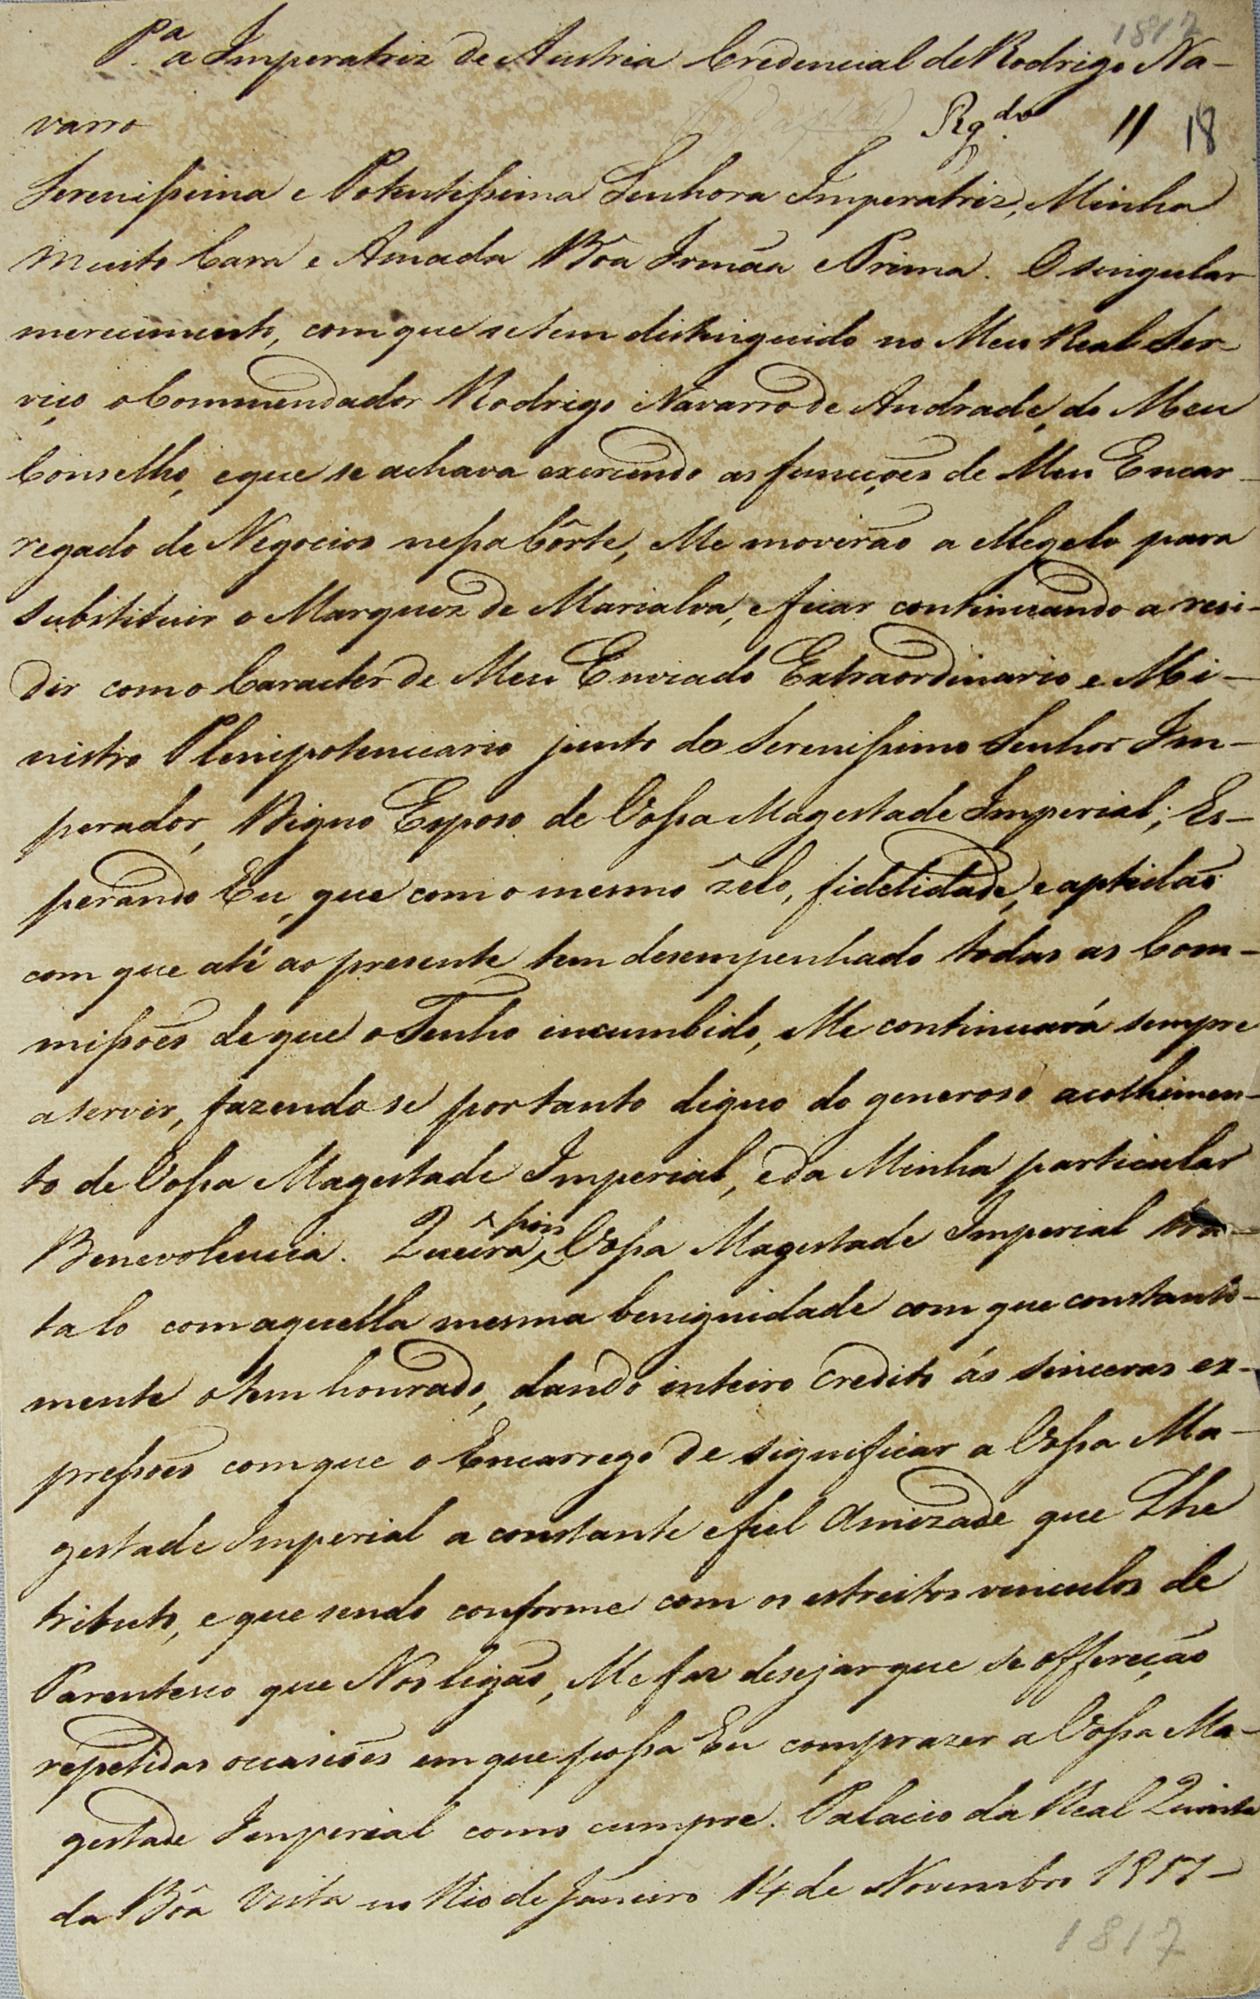 1817
P.ª a Imperatriz de Austria Credencial de Rodrigo Na-
varro
Rg.do 11 18
Serenissima e Potentissima Senhora Imperatriz, Minha
Muito Cara e Amada Bôa Irmãa e Prima. O singular
merecimento, com que se tem distinguido no Meu Real Ser-
viço o Commendador Rodrigo Navarro de Andrade, do Meu
Conselho, e que se achava exercendo as funcções de Meu Encar-
regado de Negocios nessa Côrte, Me moverão a Elegelo para
substituir o Marquez de Marialva, e ficar continuando a resi-
dir com o Caracter de Meu Enviado Extraordinario e Mi-
nistro Plenipotenciario junto do Serenissimo Senhor Im-
perador, Digno Esposo de Vossa Magestade Imperial; Es-
perando Eu, que com o mesmo zêlo, fidelidade, e aptidão
com que até ao presente tem desempenhado todas as Com-
missões de que o Tenho incumbido, Me continuará sempre
a servir, fazendo se por tanto digno do generoso acolhimen-
to de Vossa Magestade Imperial, e da Minha particular
Benevolencia. Queira, pois, Vossa Magestade Imperial tra-
talo com aquella mesma benignidade com que constante-
mente o tem honrado, dando inteiro credito ás sinceras ex-
pressões com que o Encarrego de significar a Vossa Ma-
gestade Imperial a constante e fiel Amizade que Lhe
tributo, e que sendo conforme com os estreitos vinculos de
Parentesco que Nos ligão, Me faz desejar que se offereção
repetidas occasiões em que possa Eu comprazer a Vossa Ma-
gestade Imperial como cumpre. Palacio da Real Quinta
da Bôa Vista no Rio de Janeiro 14 de Novembro 1817-
1817